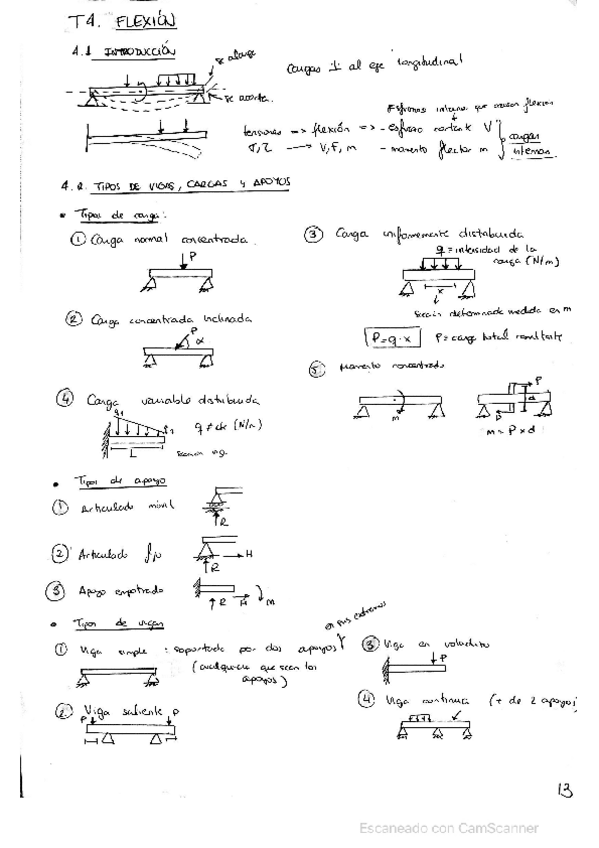 T4. FLEXIÓN
4.1 INTRODUCCIÓN
se alarga
se acorta
Cargas ⊥ al eje longitudinal
Esfuerzos internos que causan flexión
tensiones => flexión => - esfuerzo cortante V
σ, τ → V, F, m - momento flector m
cargas internas
4.2. TIPOS DE VIGAS, CARGAS Y APOYOS
• Tipos de carga:
① Carga normal concentrada
P
② Carga concentrada inclinada
P
α
③ Carga uniformemente distribuida
q = intensidad de la
carga (N/m)
x
medida en m
P = q · x P = carga total resultante
④ Carga variable distribuida
q1
L
q ≠ cte (N/m)
⑤ Momento concentrado
m
P
d
P
m = P x d
• Tipos de apoyo
① Articulado móvil
R
② Articulado fijo
R
H
③ Apoyo empotrado
R H M
• Tipos de vigas
① Viga simple : soportada por dos apoyos
en sus extremos
(cualquiera que sean los
apoyos)
② Viga saliente
P P
③ Viga en voladizo
P
④ Viga continua (+ de 2 apoyos)
13
Escaneado con CamScanner